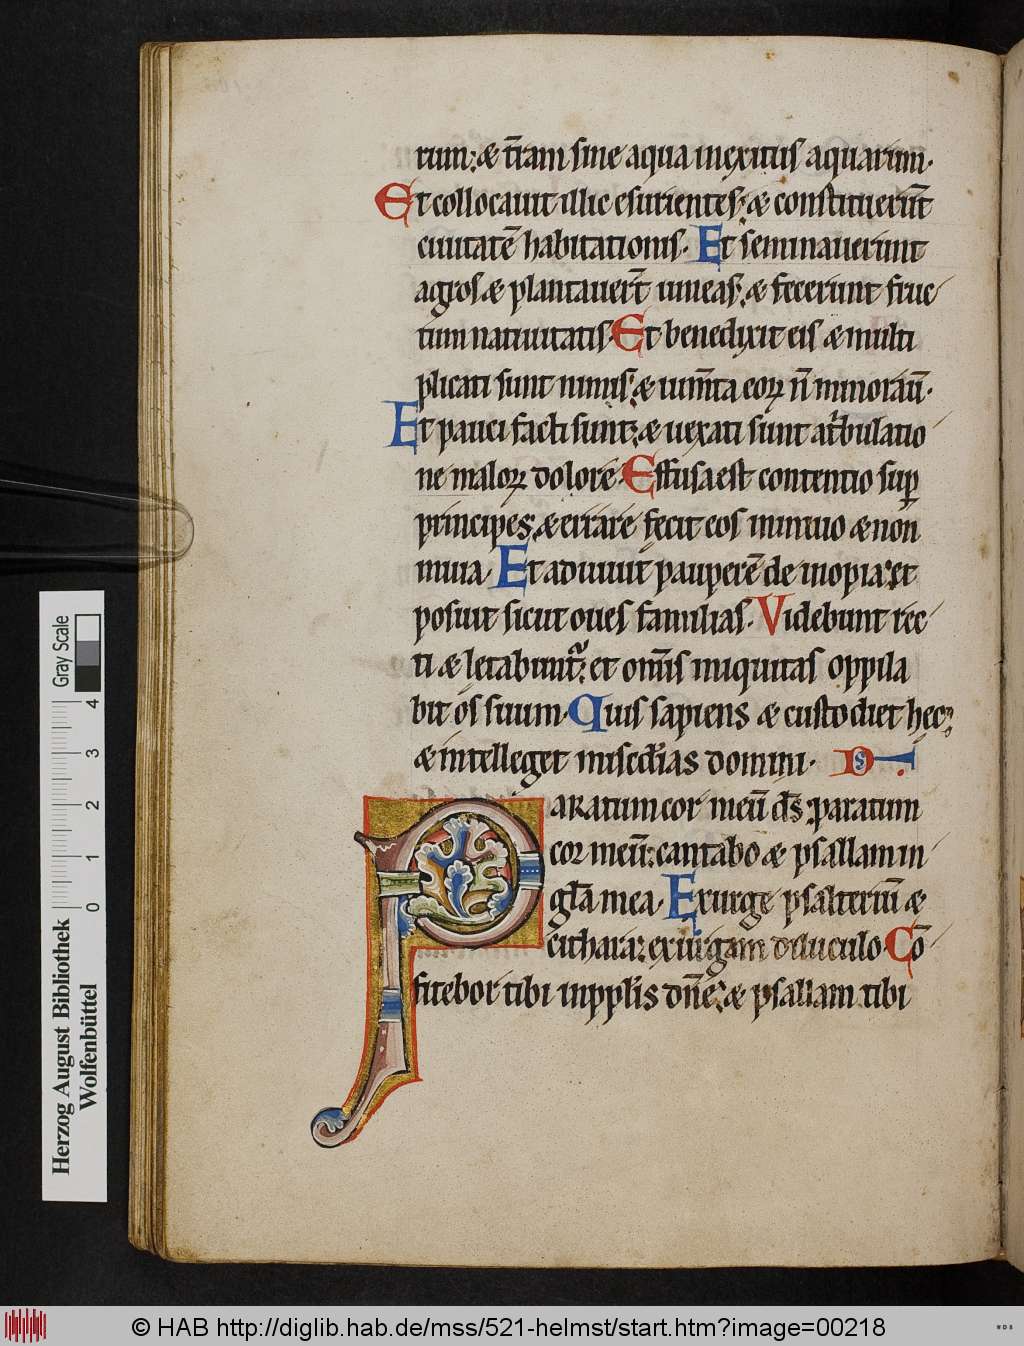 rum; & t̄ram sine aqua in exitus aquarum.
Et collocauit illic esurientes; & constituerūt
ciuitatē habitationis. Et seminauerunt
agros & plantauer̄t uineas; & fecerunt fruc
tum natiuitatis. Et benedixit eis & multi
plicati sunt nimis; & ium̄ta eoꝝ n̄ minorauͥ.
Et pauci facti sunt; & uexati sunt a tͥbulatio
ne maloꝝ & dolore. Effusa est contentio suꝑ
principes; & errare fecit eos in inuio & non
in uia. Et adiuuit pauperē de inopia; et
posuit sicut oues familias. Videbunt rec
ti & letabuntͬ; et om̄is iniquitas oppila
bit os suum. Quis sapiens & custodiet hęc;
& intelleget miserc̄dias domini.
Paratum cor meū d̄s; paratum
cor meū; cantabo & psallam in
gl̄a mea. Exurge psalteriū &
cithara; exurgam diluculo. Cō
fitebor tibi in ppl̄is dn̄e; & psallam tibi
Gray Scale
0 1 2 3 4
Herzog August Bibliothek
Wolfenbüttel
© HAB http://diglib.hab.de/mss/521-helmst/start.htm?image=00218